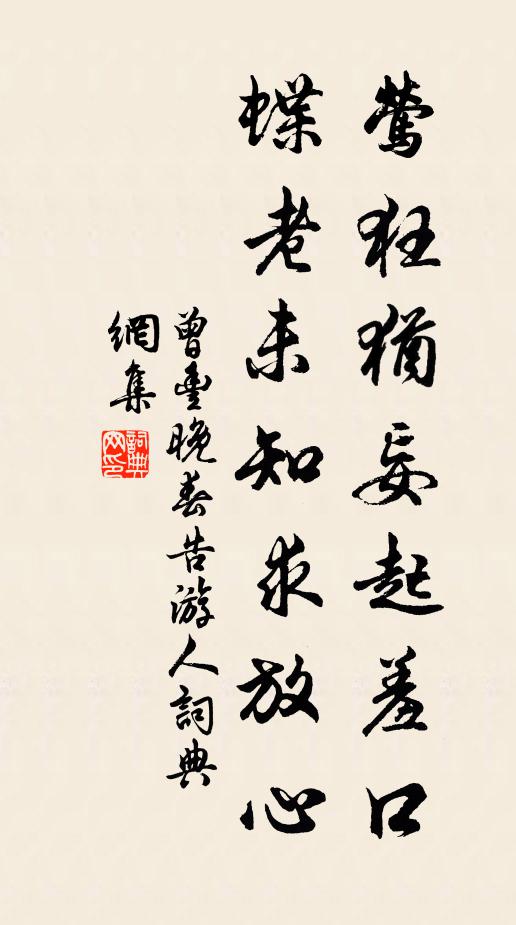 鶯狂猶妄起羞口
蝶老未知求放心
曾豐晚春告游人詞典
網集
詞典
网印